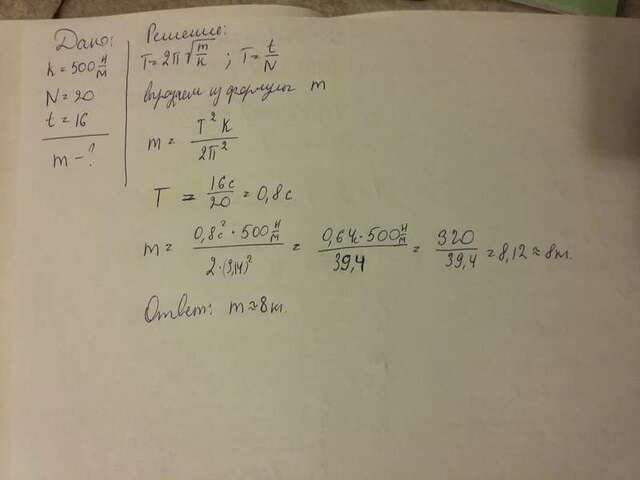 Дано:
k = 500 Н/м
N = 20
t = 16
m - ?
Решение:
T = 2π√(m/k) ; T = t/N
выражаем из формулы m
m = T² k / 2π²
T = 16с / 20 = 0,8 с
m = 0,8с² · 500 Н/м / 2·(3,14)² = 0,64с · 500 Н/м / 39,4 = 320 / 39,4 = 8,12 ≈ 8кг.
Ответ: m ≈ 8 кг.